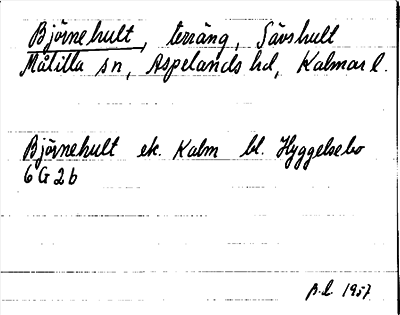 Björnehult, terräng, Sävshult
Målilla sn, Aspelands hd, Kalmar l.
Björnehult ek. Kalm bl. Hyggelsebo
6 G 2 b
B.L. 1957